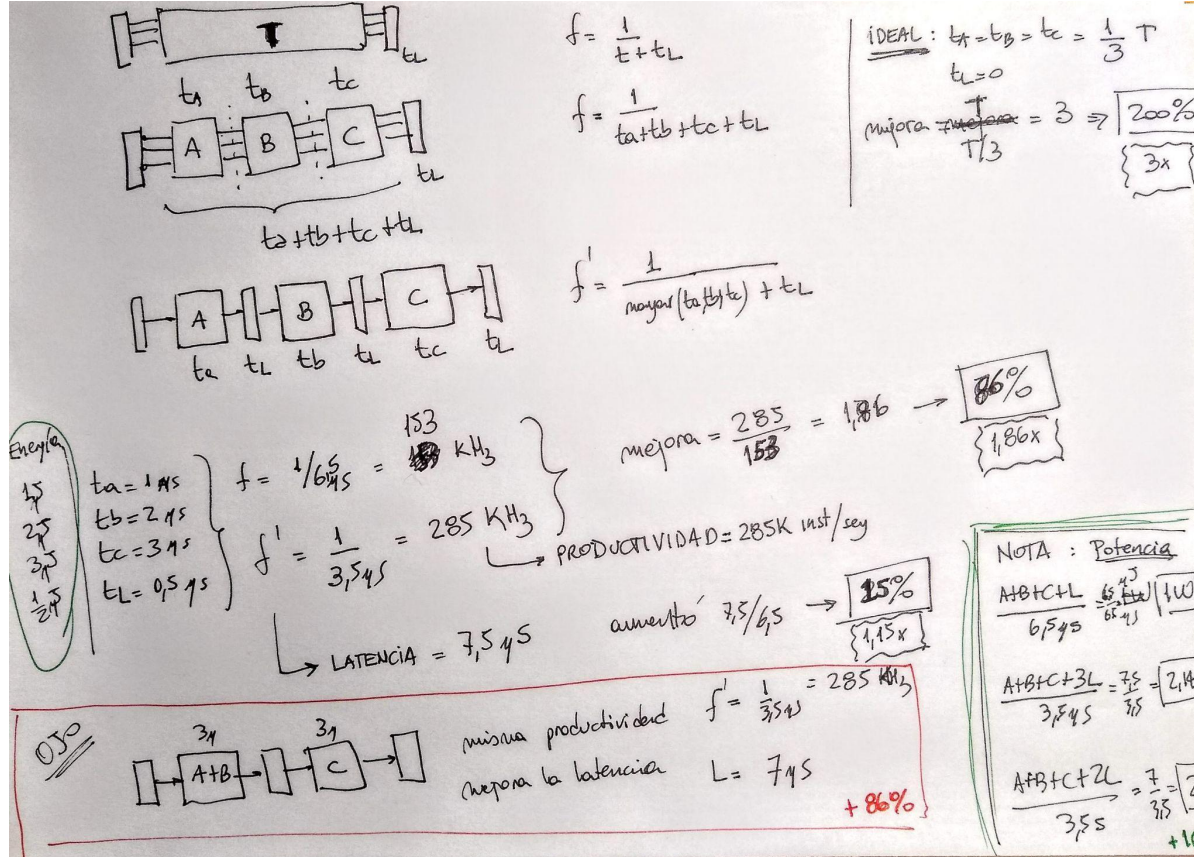 T
tL
f = 1/(t+tL)
tA tB tC
A B C
tL
f = 1/(ta+tb+tc+tL)
ta+tb+tc+tL
A B C
ta tL tb tL tc tL
f' = 1/(mayor(ta,tb,tc) + tL)
IDEAL: tA=tB=tC = 1/3 T
tL=0
mejora = T/(T/3) = 3 ⇒ 200%
3x
Energía
1μJ
2μJ
3μJ
1/2μJ
ta = 1 μs
tb = 2 μs
tc = 3 μs
tL = 0,5 μs
f = 1/6,5μs = 153 KHz
f' = 1/3,5μs = 285 KHz
mejora = 285/153 = 1,86 → 86%
1,86x
→ PRODUCTIVIDAD = 285K inst/seg
→ LATENCIA = 7,5 μs
aumentó 7,5/6,5 → 15%
1,15x
OJO
3μ 3μ
A+B C
misma productividad f' = 1/3,5μs = 285 KHz
mejora la latencia L = 7μs
+ 86%
NOTA: Potencia
(A+B+C+L)/6,5μs = 6,5μJ/6,5μs = 1W
(A+B+C+3L)/3,5μs = 7,5/3,5 = 2,14
(A+B+C+2L)/3,5s = 7/3,5 = 2